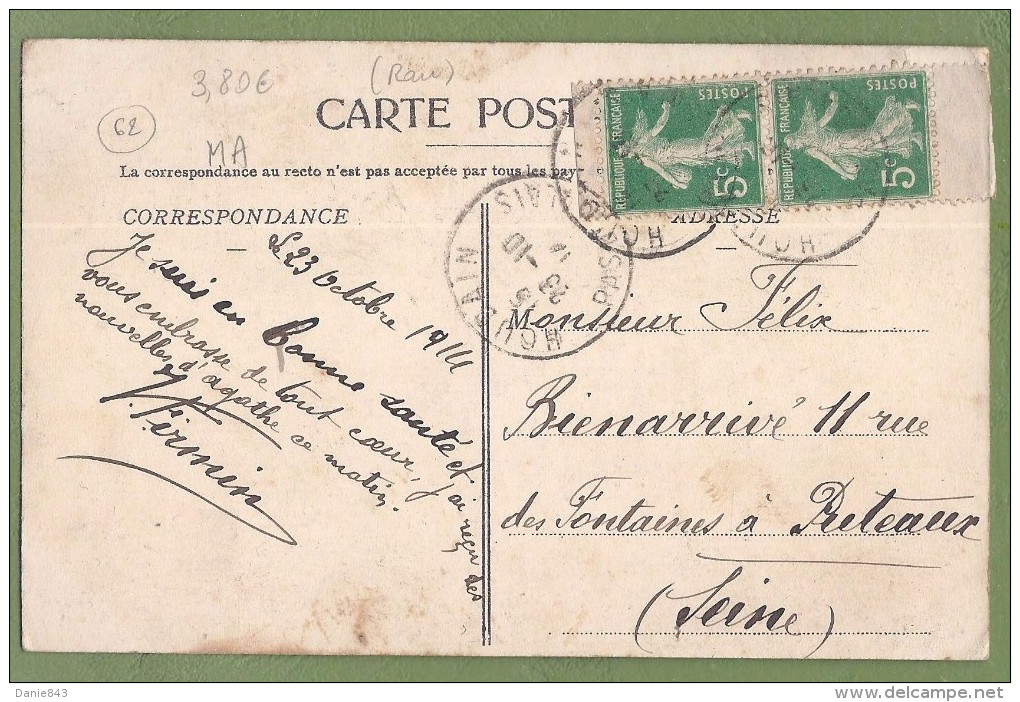 3,80€
(Rare)
62
MA
CARTE POST
La correspondance au recto n'est pas acceptée par tous les pay
CORRESPONDANCE
ADRESSE
REPUBLIQUE FRANÇAISE
POSTES
5c
REPUBLIQUE FRANÇAISE
POSTES
5c
HOUDAIN
Pas DE CALAIS
23 -10
14
Le 23 Octobre 1914
Je suis en bonne santé et
vous embrasse de tout cœur, j'ai reçu des
nouvelles d'agathe ce matin.
Firmin
Monsieur Félix
Bienarrivé 11 rue
des Fontaines à Puteaux
(Seine)
Danie843
www.delcampe.net